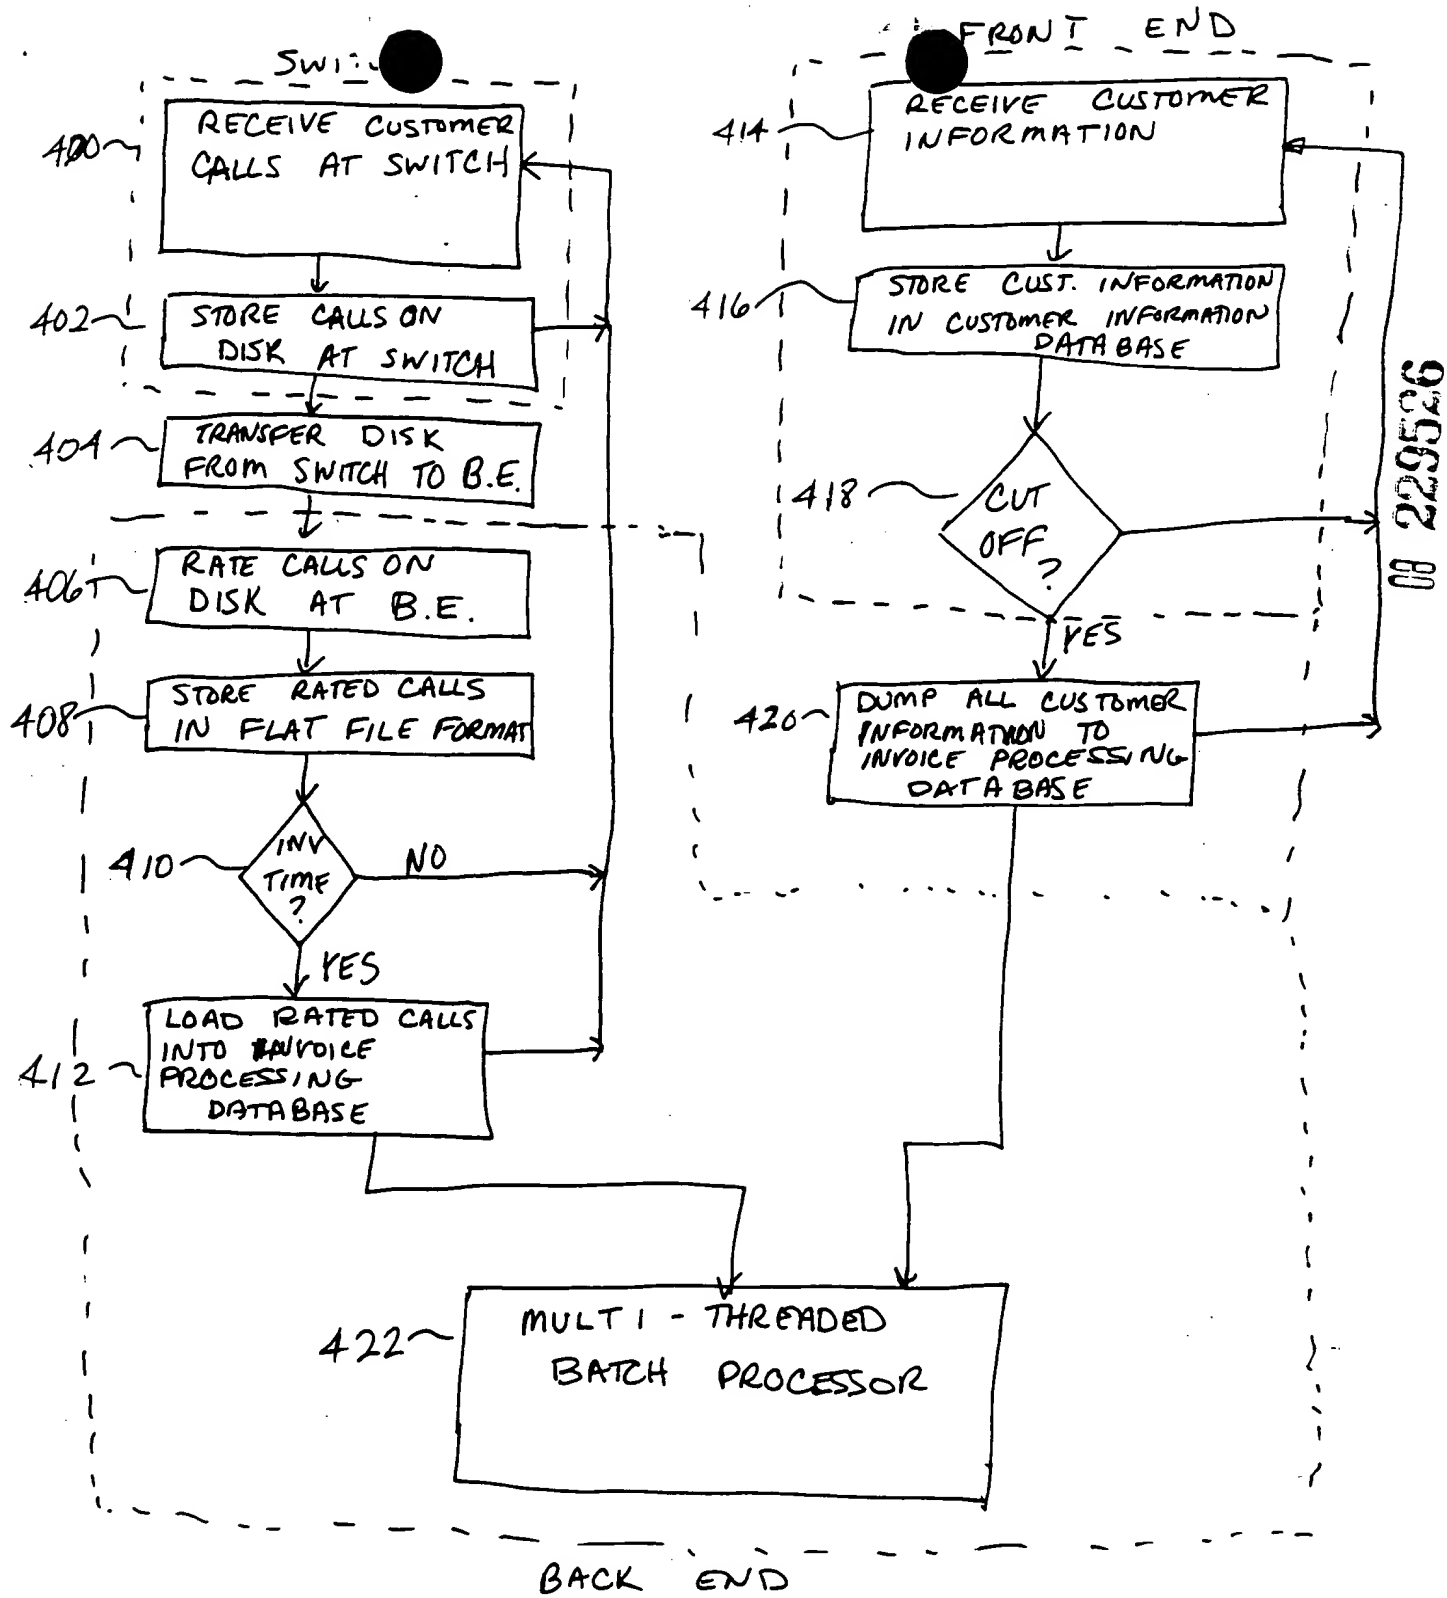 FRONT END
400
RECEIVE CUSTOMER
CALLS AT SWITCH
402
STORE CALLS ON
DISK AT SWITCH
404
TRANSFER DISK
FROM SWITCH TO B.E.
406
RATE CALLS ON
DISK AT B.E.
408
STORE RATED CALLS
IN FLAT FILE FORMAT
410
INV
TIME
?
NO
YES
412
LOAD RATED CALLS
INTO INVOICE
PROCESSING
DATABASE
414
RECEIVE CUSTOMER
INFORMATION
416
STORE CUST. INFORMATION
IN CUSTOMER INFORMATION
DATABASE
418
CUT
OFF
?
YES
420
DUMP ALL CUSTOMER
INFORMATION TO
INVOICE PROCESSING
DATABASE
422
MULTI - THREADED
BATCH PROCESSOR
BACK END
08 229526